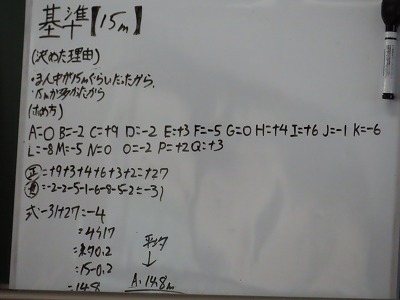 基準【15m】
(決めた理由)
・3人中が15mくらいだったから
・15mが多かったから
(求め方)
A=0 B=-2 C=+9 D=-2 E=+3 F=-5 G=0 H=+4 I=+6 J=-1 K=-6
L=-8 M=-5 N=0 O=-2 P=+2 Q=+3
正=+9+3+4+6+3+2=+27
負=-2-2-5-1-6-8-5-2=-31
式-31+27=-4
=4÷17
=約0.2
=15-0.2
=14.8
平均
↓
A.14.8m